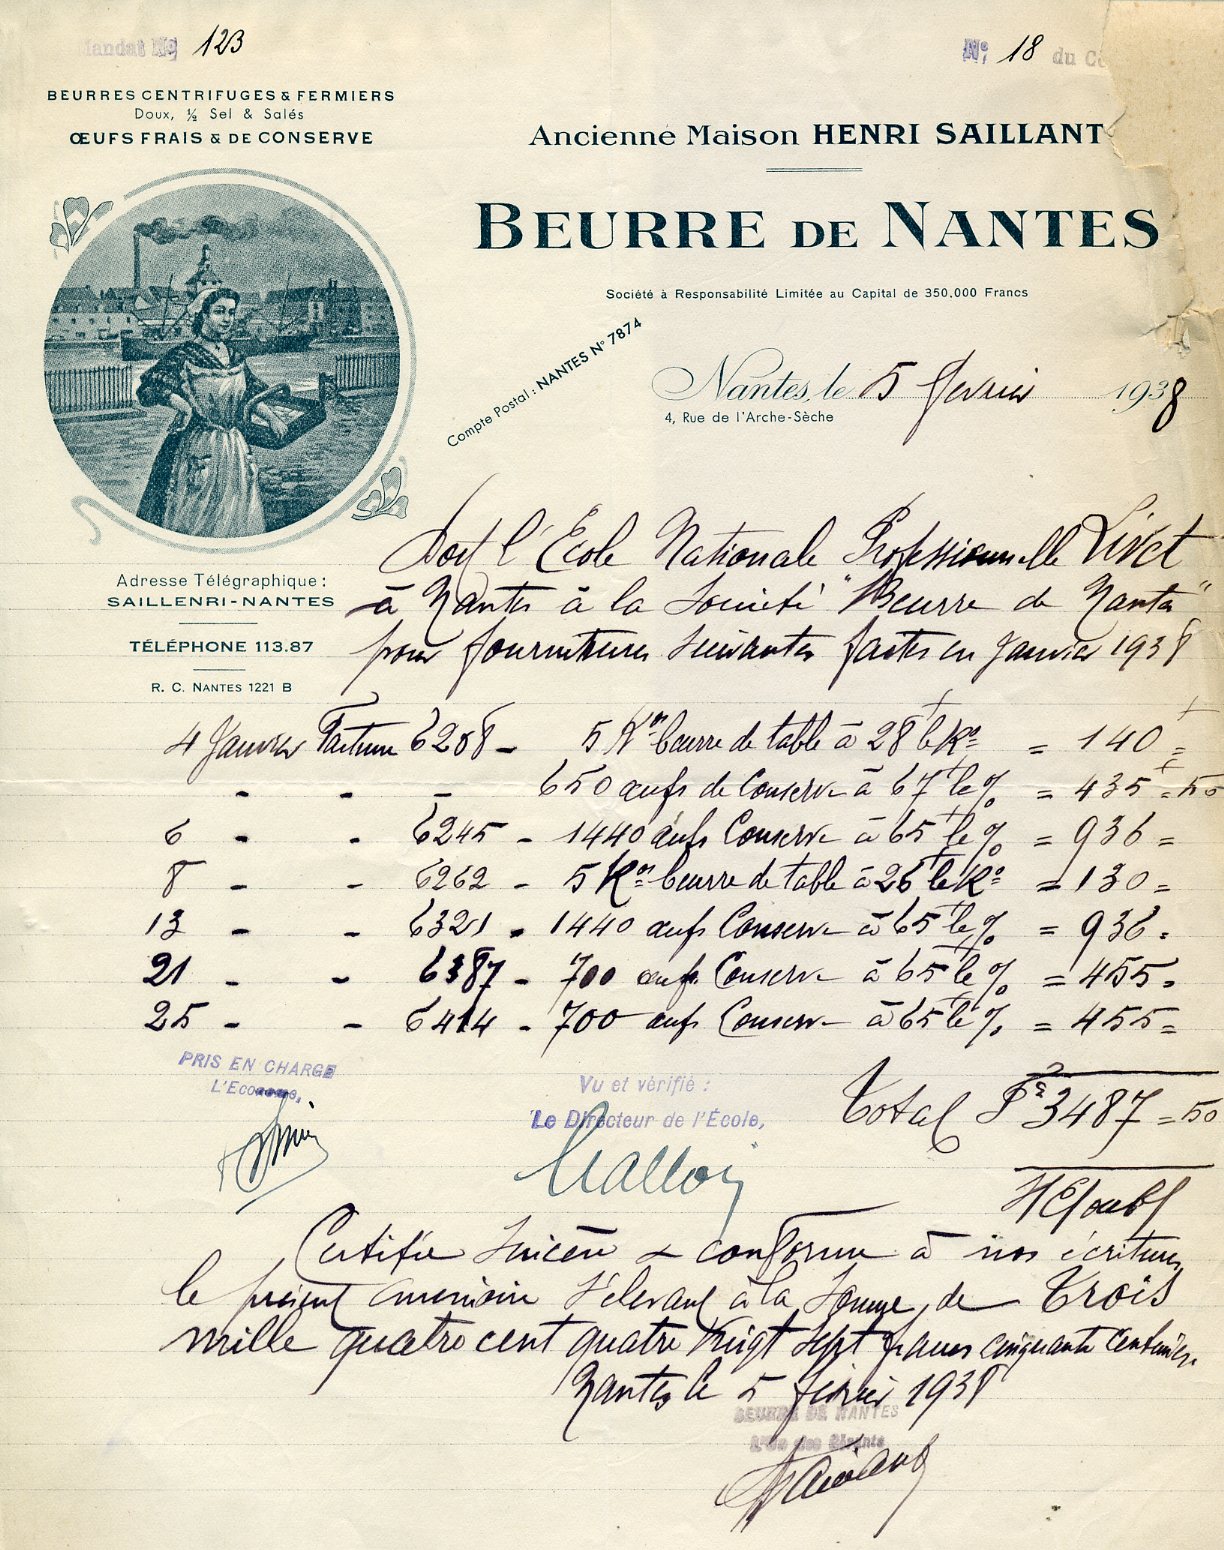 Mandat No 123
No 18 du
BEURRES CENTRIFUGES & FERMIERS
Doux, ½ Sel & Salés
ŒUFS FRAIS & DE CONSERVE
Ancienne Maison HENRI SAILLANT
BEURRE DE NANTES
Société à Responsabilité Limitée au Capital de 350,000 Francs
Compte Postal : NANTES No 7874
Nantes, le 5 fevrier 1938
4, Rue de l'Arche-Sèche
Adresse Télégraphique :
SAILLENRI-NANTES
TÉLÉPHONE 113.87
R. C. NANTES 1221 B
Doit l'Ecole Nationale Professionnelle Livet
à Nantes à la Société "Beurre de Nantes"
pour fournitures suivantes faites en Janvier 1938
4 Janvier Facture 6208 - 5 Kos beurre de table à 28f le Ko = 140 =
- - - 650 œufs de Conserve à 67f le % = 435 = 50
6 - - 6245 - 1440 œufs Conserve à 65f le % = 936 =
8 - - 6262 - 5 Kos beurre de table à 26f le Ko = 130 =
13 - - 6321 - 1440 œufs Conserve à 65f le % = 936 =
21 - - 6387 - 700 œufs Conserve à 65f le % = 455 =
25 - - 6414 - 700 œufs Conserve à 65f le % = 455 =
PRIS EN CHARGE
L'Econome,
Vu et vérifié :
Le Directeur de l'École,
Total Frs 3487 = 50
Certifié Sincère & conforme à nos écritures
le présent mémoire s'élevant à la Somme de Trois
mille quatre cent quatre vingt sept francs cinquante centimes
Nantes le 5 février 1938
BEURRE DE NANTES
L'Un des Gérants
Saillant